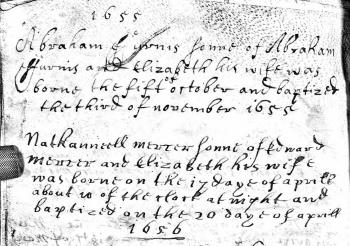 1655
Abraham sonne of Abraham
and Elizabeth his wife was
borne the fift of october and baptized
the third of november 1655
Nathanneell mercer sonne of Edward
mercer and Elizabeth his wife
was borne on the 17 daye of aprill
about 10 of the clock at night and
baptized on the 20 daye of aprill
1656